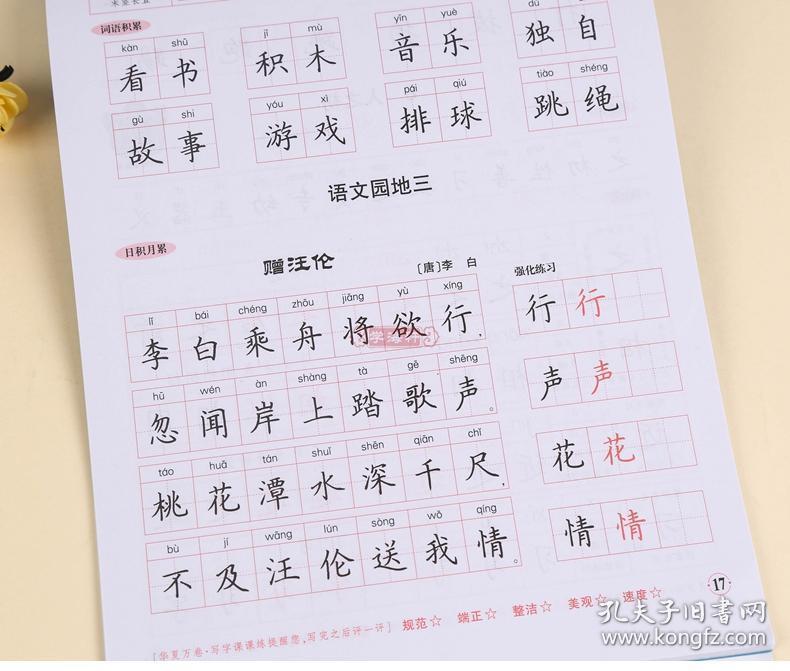 词语积累
kàn shū jī mù yīn yuè dú zì
看书 积木 音乐 独自
gù shi yóu xì pái qiú tiào shéng
故事 游戏 排球 跳绳
语文园地三
日积月累
赠汪伦
〔唐〕李 白
强化练习
lǐ bái chéng zhōu jiāng yù xíng
李白乘舟将欲行，
行 行
hū wén àn shàng tà gē shēng
忽闻岸上踏歌声。
声 声
táo huā tán shuǐ shēn qiān chǐ
桃花潭水深千尺，
花 花
bù jí wāng lún sòng wǒ qíng
不及汪伦送我情。
情 情
17
[华夏万卷·写字课课练提醒您，写完之后评一评] 规范☆ 端正☆ 整洁☆ 美观☆ 速度☆
孔夫子旧书网
www.kongfz.com